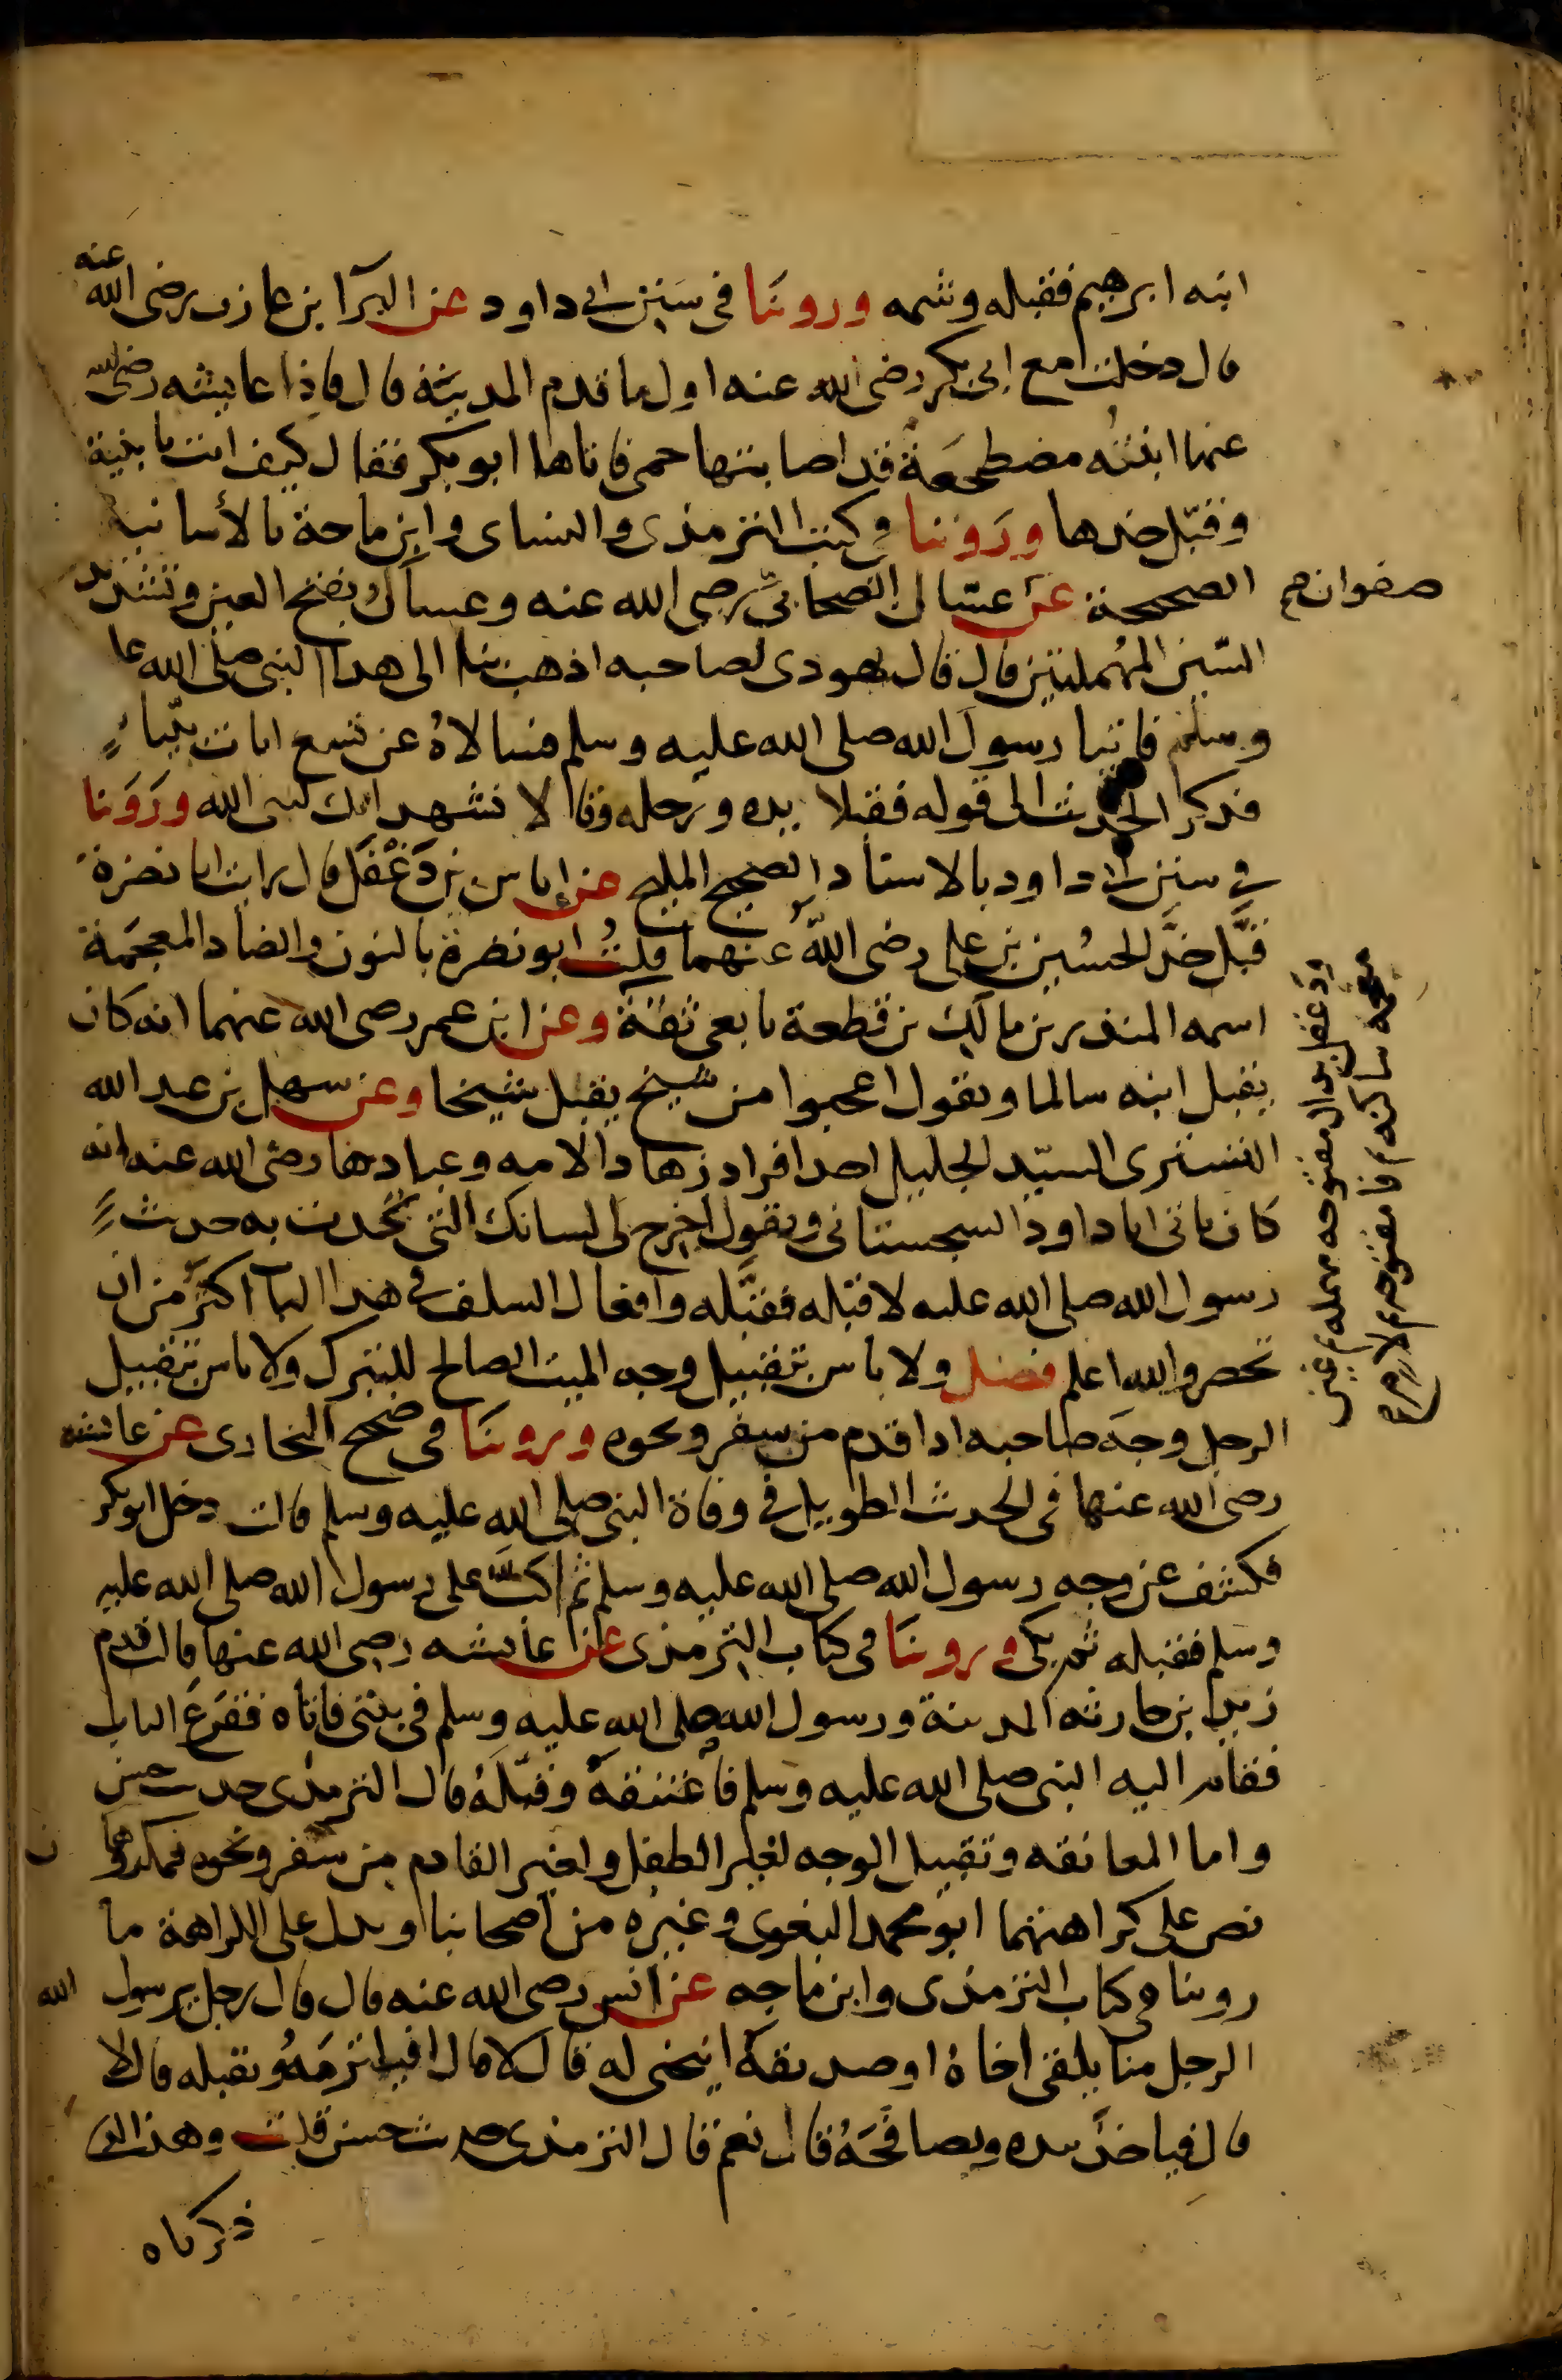 ابنه ابرهيم فقبله وشمه وروينا في سنن ابي داود عن البرا بن عازب رضى الله عنه
قال دخلت مع ابى بكر رضى الله عنه اول ما قدم المدينة قال فاذا عايشه رضى الله
عنها ابنته مضطجعة قد اصابتها حمى فاتاها ابو بكر فقال كيف انت يا بنية
وقبّل خدها وروينا في كتب الترمذى والنساى وابن ماجة بالأسانيد
الصحيحة عن عسّال الصحابىّ رضى الله عنه وعسال بفتح العين وتشديد
صفوان بن صح
السّين المهملتين قال قال يهودى لصاحبه اذهب بنا الى هذا النبى صلى الله عليه
وسلم فاتيا رسول الله صلى الله عليه وسلم فسالاهُ عن تسع ايات بيّنات
فذكر الحديث الى قوله فقبلا يده ورجله وقالا نشهد انك نبى الله وروينا
في سنن ابى داود بالاسناد الصحيح المليح عن إياس بن دَغْفَل قال رايت ابا نضرة
قبَّل خدَّ الحسُين بن على رضى الله عنهما قلتُ ابو نضرة بالنون والضاد المعجمة
اسمه المنذر بن مالك بن قطعة تابعى ثقة وعن ابن عمر رضى الله عنهما انه كان
يقبل ابنه سالما ويقول اعجبوا من شيخ يقبل شيخا وعن سهل بن عبد الله
التسترى السيّد الجليل احد افراد زهاد الامه وعبادها رضى الله عنه انه
كان ياتى ابا داود السجستانى ويقول اخرج لى لسانك التى تحدث به حديث
رسول الله صلى الله عليه لاقبّله فقبَّله وافعال السلف في هذا الباب اكثر من ان
تحصر والله اعلم فصل ولا باس بتقبيل وجه الميت الصالح للتبرك ولا باس بتقبيل
الرجل وجهَ صاحبه اذا قدم من سفر ونحوه وروينا فى صحيح البخارى عن عائشه
رضى الله عنها فى الحديث الطويل في وفاة النبى صلى الله عليه وسلم قالت دخل ابو بكر
فكشف عن وجه رسول الله صلى الله عليه وسلم ثم اكبّ على رسول الله صلى الله عليه
وسلم فقبله ثم بكى وروينا فى كتاب الترمذى عن عايشه رضى الله عنها قالت قدم
زيد بن حارثه المدينة ورسول الله صلى الله عليه وسلم فى بيتى فاتاه فقرَعَ الباب
فقام اليه النبى صلى الله عليه وسلم فاعتنقهُ وقبّلهُ قال الترمذى حديث حسن
واما المعانقه وتقبيل الوجه لغير الطفل ولغير القادم من سفر ونحوه فمكروهان
نص على كراهتهما ابو محمد البغوى وغيره من اصحابنا ويدل على الكراهة ما
روينا فى كتاب الترمذى وابن ماجه عن انس رضى الله عنه قال قال رجل يرسول الله
الرجل منا يلقى اخاهُ او صديقهُ اينحنى له قال لا قال افيلتزمهُ ويقبله قال لا
قال فياخذُ بيده ويصافحَهُ قال نعم قال الترمذى حديث حسن قلت وهذا الذى
ذكرناه
ودغفل بدال مفتوحه مهمله ثم غين
معجمه ساكنه ثم فا مفتوحه ثم لام صح